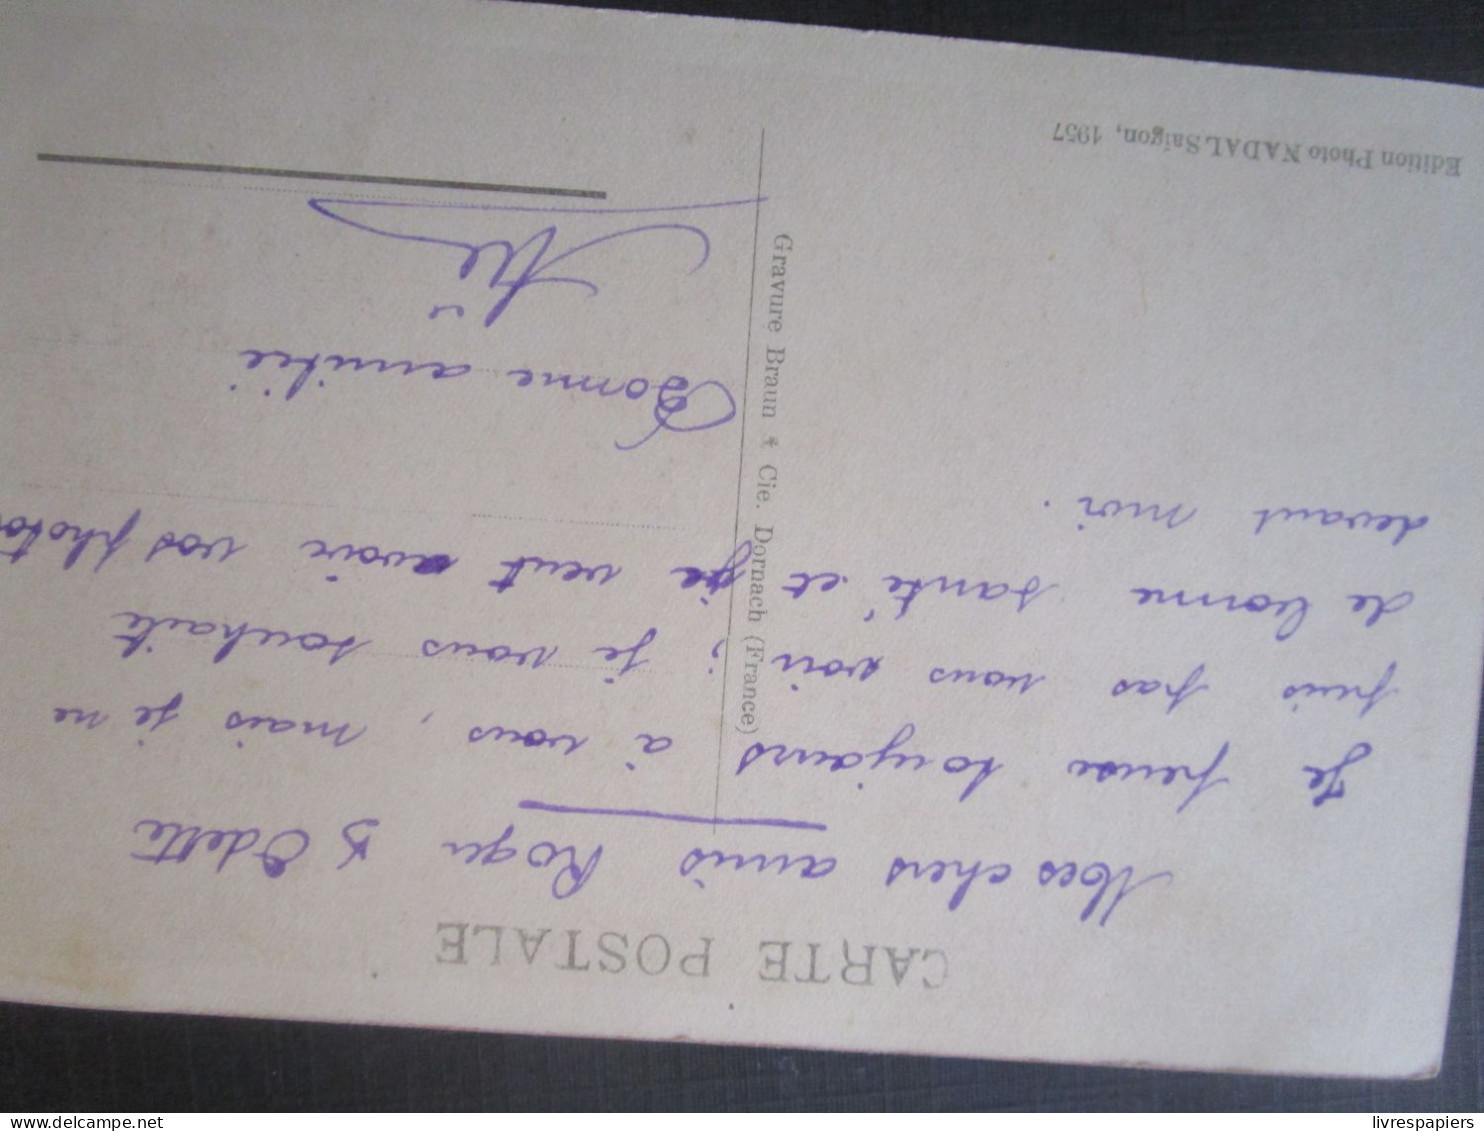 CARTE POSTALE
Mes chers amis Roger & Odette
Je pense toujours à vous, mais je ne
puis pas vous voir ; je vous souhaite
de bonne santé et je veut avoir vos photos
devant moi.
Bonne amitié
Edition Photo NADAL Saïgon, 1957
Gravure Braun & Cie. Dornach (France)
www.delcampe.net
livrespapiers